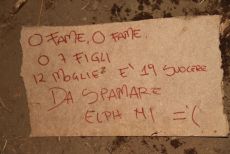 O FAME, O FAME.
O 7 FIGLI
12 MOGLIE² E' 19 SUOCERE
DA SPAMARE
ELPH MI ='(